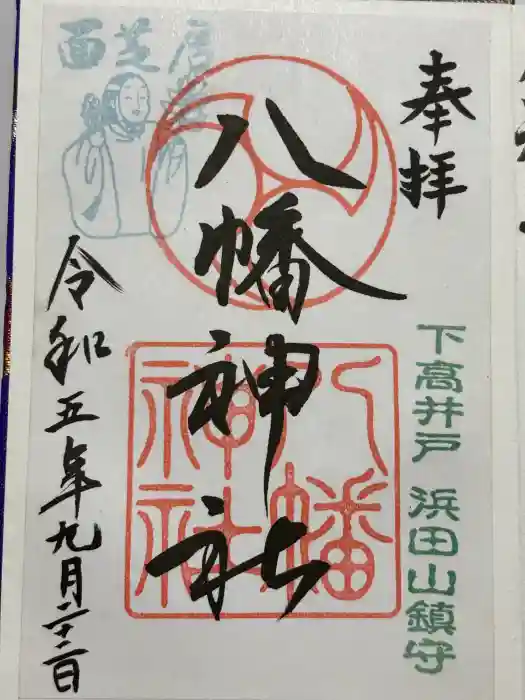 奉拝
下高井戸 浜田山鎮守
八幡神社
八幡
神社
面芝居
令和五年九月二十二日